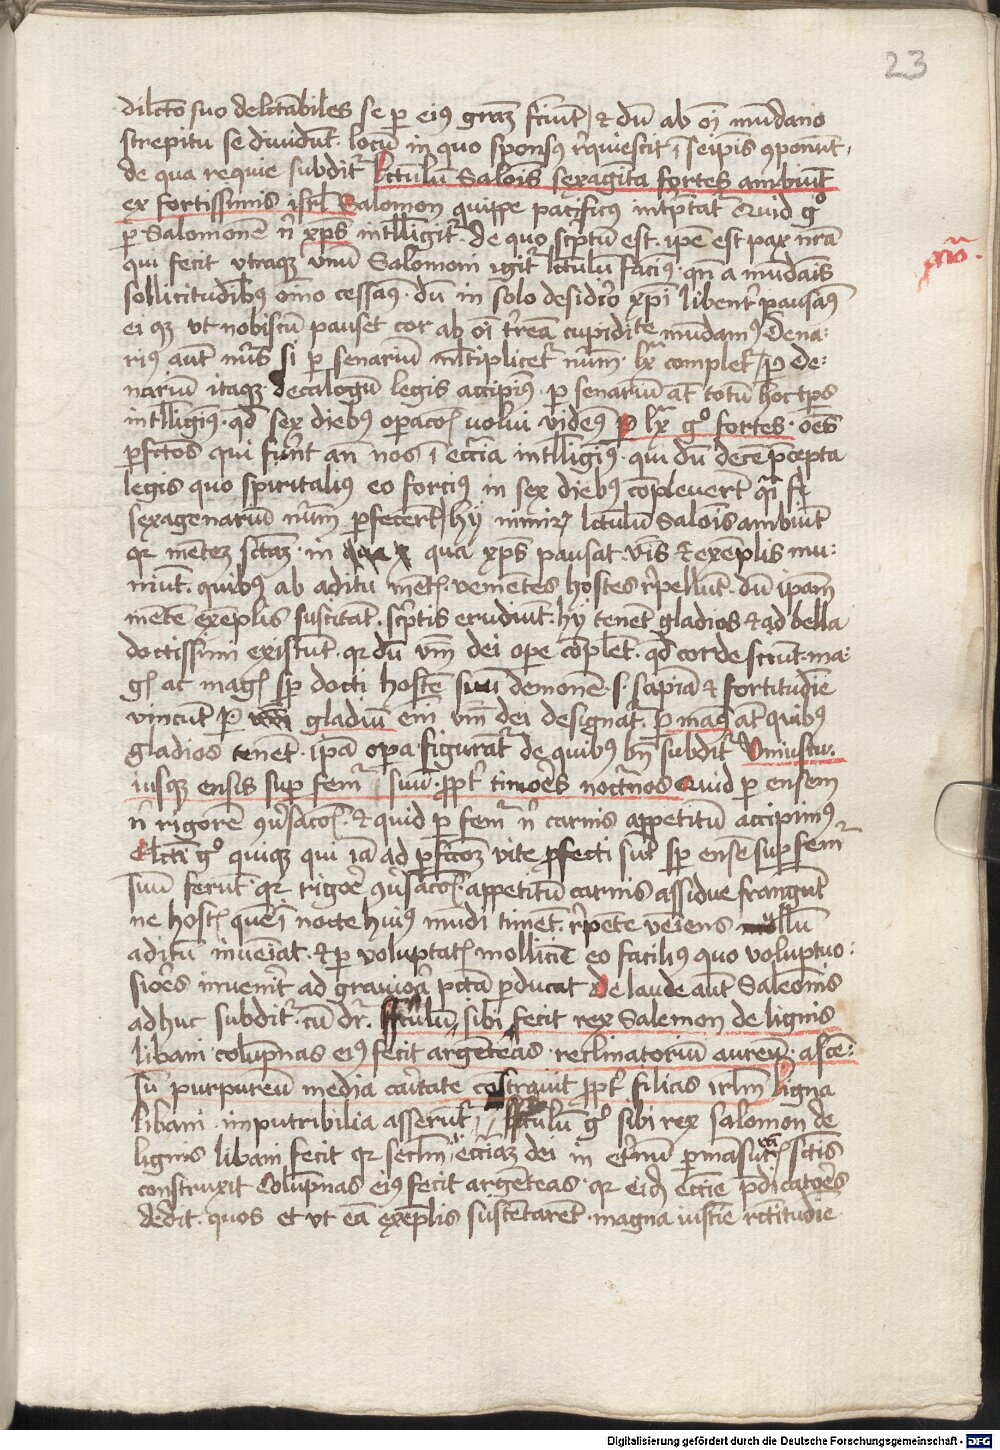 23
dilcto suo delectabiles se per eius graz faciunt / et dum ab omni mundano
strepitu se dividunt. locum in quo sponsus requiescit i seipsis componunt,
de qua requie subditur lectulum Salois sexaginta fortes ambiunt
ex fortissimis isrl Salomon quippe pacificus interpretatur Quid go
per Salomonem ni xps intelligitur. de quo scptum est. ipse est pax nra
qui fecit utraque unum Salomoni igitur lectulum facimus. qn a mundanis
sollicitudinibus omnino cessamus. dum in solo desiderio xpi libenter pausamus
ei que ut nobiscum pauset cor ab omni terrena cupiditate mundamus Dena:
rius autem numerus si per senarium multiplicetur numerum. lx completur / per de:
narium itaque decalogum legis accipimus. per senarium autem totum hoc tempus
intelligimus. quod sex diebus operacionis volvi videmus Per lx go fortes. omnes
perfectos qui fuerunt ante nos i ecclesia intelligimus. qui dum decem precepta
legis quo spiritalius eo forcius in sex diebus compleverunt quasi
sexagenarium numerum perfecerunt / hy nimirum lectulum Salois ambiunt
quia mentem sanctam. in qua xps pausat verbis et exemplis mu:
niunt. quibus ab aditu mentis. venientes hostes repellunt. dum ipsam
mentem exemplis suscitant. scriptis erudiunt. hy tenent gladios et ad bella
doctissimi existunt. quia dum verbum dei opere complent. quod corde sciunt. ma:
gis ac magis semper docti hostem suum demonem. s. sapientia et fortitudine
vincunt Per gladium enim verbum dei designatur. per manus autem quibus
gladios tenent. ipsa opera figurantur de quibus bene subditur Uniuscu:
iusque ensis super femur suum. propter timores nocturnos Quid per ensem
ni rigorem conversacionis. et quid per femur ni carnis appetitum accipimus
Electi go quique qui iam ad perfectionem vite profecti sunt semper ensem super femur
suum ferunt. quia rigore conversacionis. appetitum carnis assidue frangunt
ne hostis quem i nocte huius mundi timent. repente veniens ullum
aditum inveniat. et per voluptatis molliciem eo facilius quo voluptuo:
siores invenerit ad graviora peccata perducat De laude autem Saleomnis
adhuc subditur. cum dr. fferculum sibi fecit rex Salemon de lignis
libani. columpnas eius fecit argenteas. reclinatorium aureum. ascen:
sum purpureum media caritate constravit propter filias irlm Ligna
libani. imputribilia asseruntur. fferculum go sibi rex salomon de
lignis libani fecit quia secundum ecclesiam dei in eternum permansuram sanctis
construxit Columpnas eius fecit argenteas. quia eidem ecclesie predicatores
dedit. quos et ut eam exemplis sustentarent. magna iusticie rectitudine
Digitalisierung gefördert durch die Deutsche Forschungsgemeinschaft - DFG